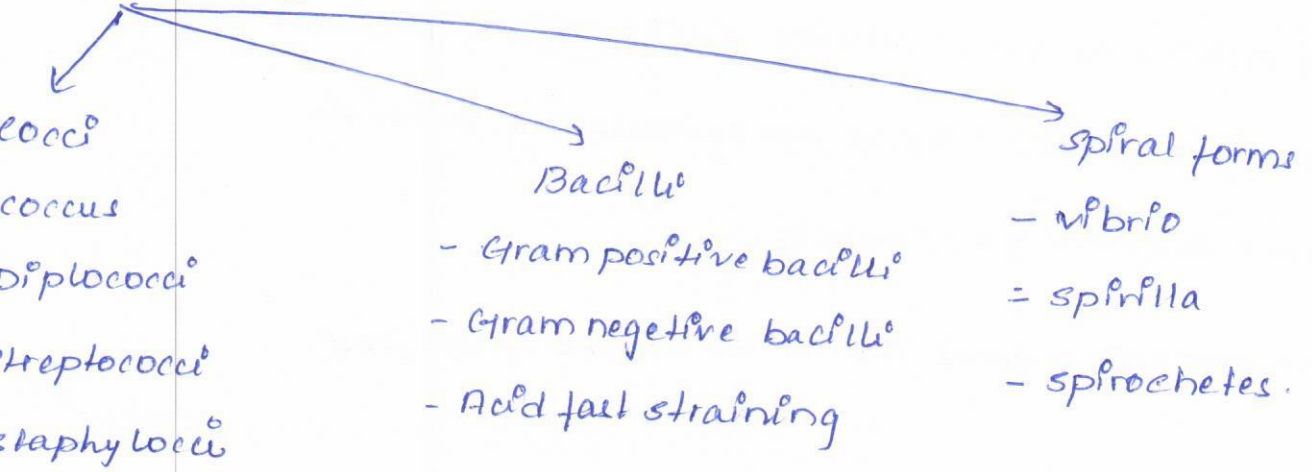 cocci
coccus
Diplococci
streptococci
staphylocci
Bacilli
- Gram positive bacilli
- Gram negetive bacilli
- Acid fast straining
spiral forms
- vibrio
= spirilla
- spirochetes.